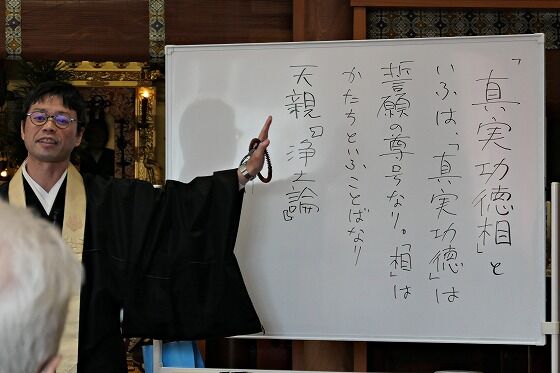 「真実功徳相」と
いふは、「真実功徳」は
誓願の尊号なり。「相」は
かたちといふことばなり
天親『浄土論』